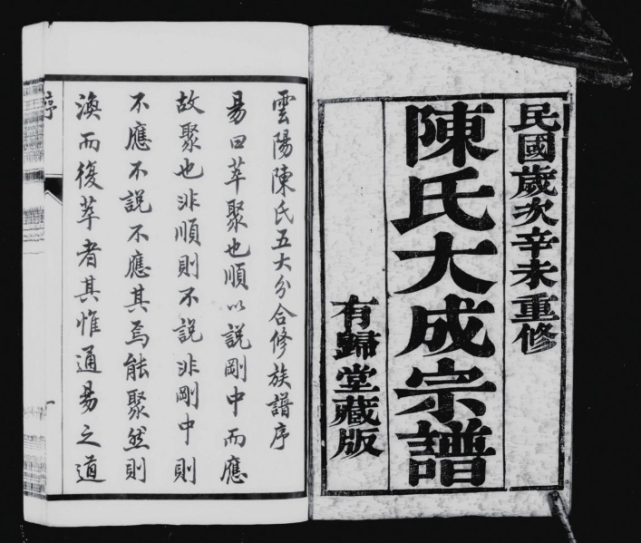 民國歲次辛未重修
陳氏大成宗譜
有歸堂藏版
雲陽陳氏五大分合修族譜序
易曰萃聚也順以說剛中而應
故聚也非順則不說非剛中則
不應不說不應其焉能聚然則
渙而復萃者其惟通易之道
序